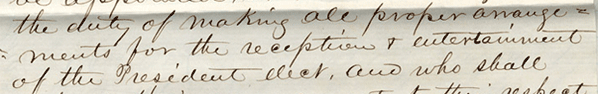 the duty of making all proper arrange=
=ments for the reception & entertainment
of the President elect, and who shall